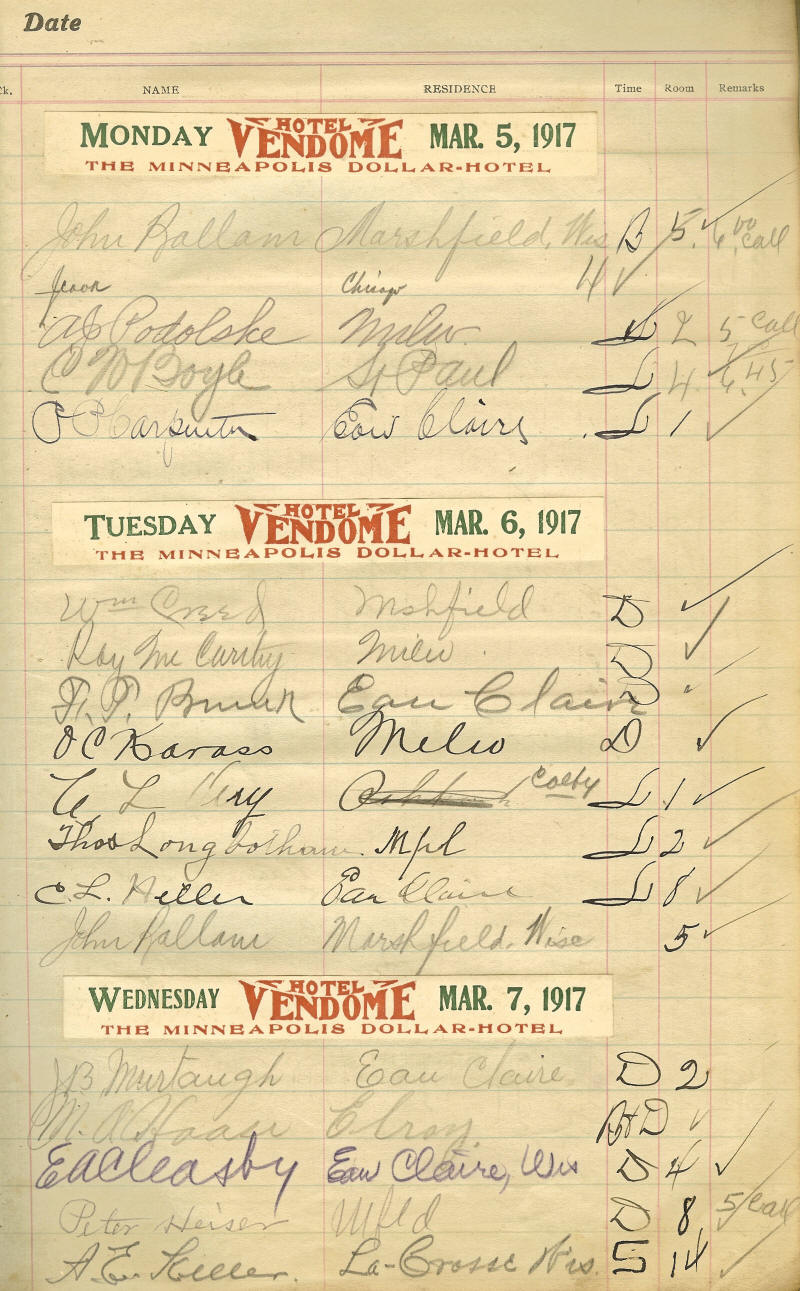 Date
ck. NAME RESIDENCE Time Room Remarks
MONDAY HOTEL VENDOME MAR. 5, 1917
THE MINNEAPOLIS DOLLAR-HOTEL
John Rallam Marshfield, Wis B 5 ✓ 6.00 Call
Chicago 4 ✓
Podolske Milw. L 2 5 Call
C W Boyle St Paul L 4 6.45
Carpenter Eau Claire L 1 ✓
TUESDAY HOTEL VENDOME MAR. 6, 1917
THE MINNEAPOLIS DOLLAR-HOTEL
Wm Creed Mshfield D ✓
Roy McCarthy Milw. D ✓
Eau Claire D "
O C Karass Milw D ✓
L Colby L 1 ✓
Thos Longbotham Mpl L 2 ✓
C. L. Heller Eau Claire L 8 ✓
John Rallam Marshfield, Wisc 5 ✓
WEDNESDAY HOTEL VENDOME MAR. 7, 1917
THE MINNEAPOLIS DOLLAR-HOTEL
J B Murtaugh Eau Claire D 2
Elroy B+D ✓
E A Cleasby Eau Claire, Wis D 4 ✓
Peter Heiser Mfld D 8 5/Call
A. E. Keller. La-Crosse Wis. S 14 ✓